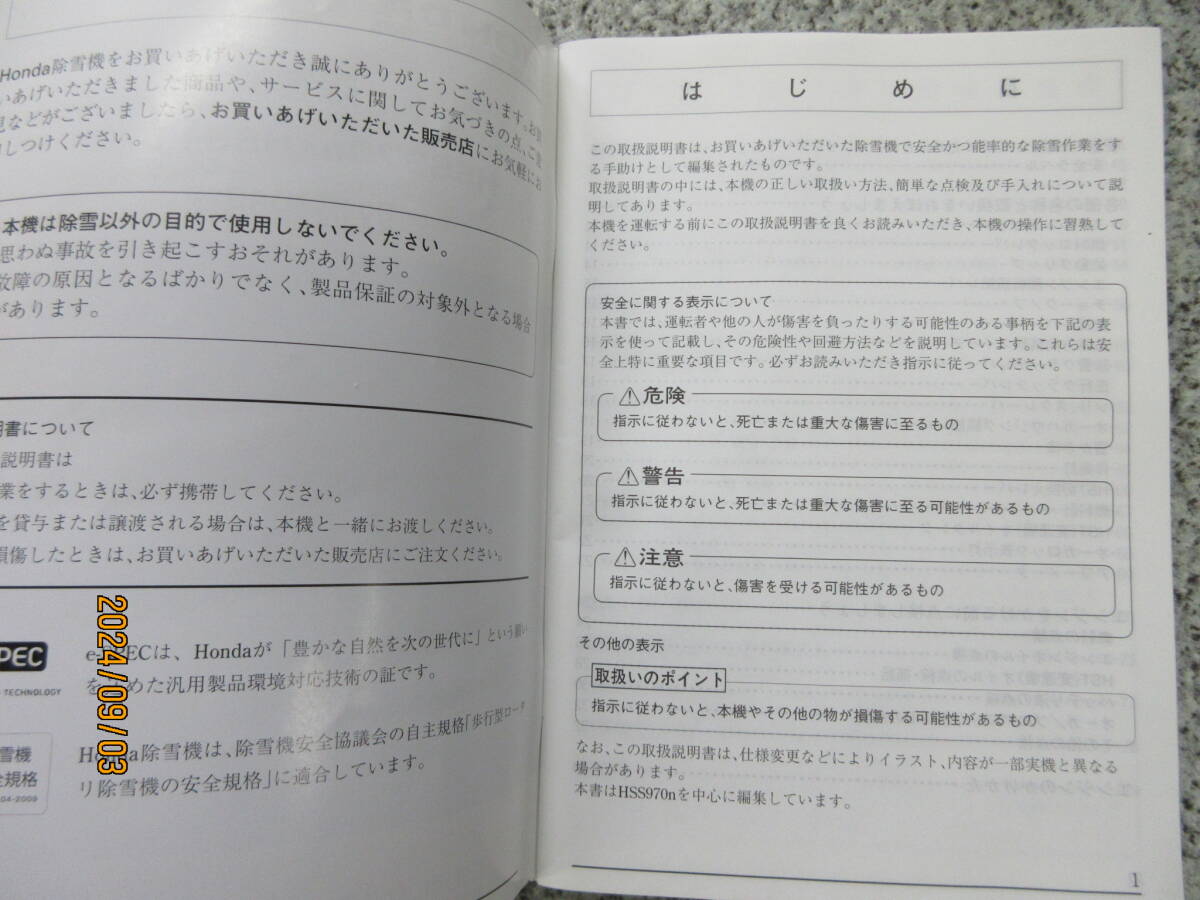 Honda除雪機をお買いあげいただき誠にありがとうございます。お買
いあげいただきました商品や、サービスに関してお気づきの点、ご意
見などがございましたら、お買いあげいただいた販売店にお気軽にお
しつけください。
本機は除雪以外の目的で使用しないでください。
思わぬ事故を引き起こすおそれがあります。
故障の原因となるばかりでなく、製品保証の対象外となる場合
があります。
明書について
説明書は
業をするときは、必ず携帯してください。
を貸与または譲渡される場合は、本機と一緒にお渡しください。
損傷したときは、お買いあげいただいた販売店にご注文ください。
PEC
TECHNOLOGY
e-SPECは、Hondaが「豊かな自然を次の世代に」という願い
を込めた汎用製品環境対応技術の証です。
雪機
全規格
04-2009
Honda除雪機は、除雪機安全協議会の自主規格「歩行型ロータ
リ除雪機の安全規格」に適合しています。
2024/09/03
はじめに
この取扱説明書は、お買いあげいただいた除雪機で安全かつ能率的な除雪作業をす
る手助けとして編集されたものです。
取扱説明書の中には、本機の正しい取扱い方法、簡単な点検及び手入れについて説
明してあります。
本機を運転する前にこの取扱説明書を良くお読みいただき、本機の操作に習熟して
ください。
安全に関する表示について
本書では、運転者や他の人が傷害を負ったりする可能性のある事柄を下記の表
示を使って記載し、その危険性や回避方法などを説明しています。これらは安
全上特に重要な項目です。必ずお読みいただき指示に従ってください。
⚠危険
指示に従わないと、死亡または重大な傷害に至るもの
⚠警告
指示に従わないと、死亡または重大な傷害に至る可能性があるもの
⚠注意
指示に従わないと、傷害を受ける可能性があるもの
その他の表示
取扱いのポイント
指示に従わないと、本機やその他の物が損傷する可能性があるもの
なお、この取扱説明書は、仕様変更などによりイラスト、内容が一部実機と異なる
場合があります。
本書はHSS970nを中心に編集しています。
1